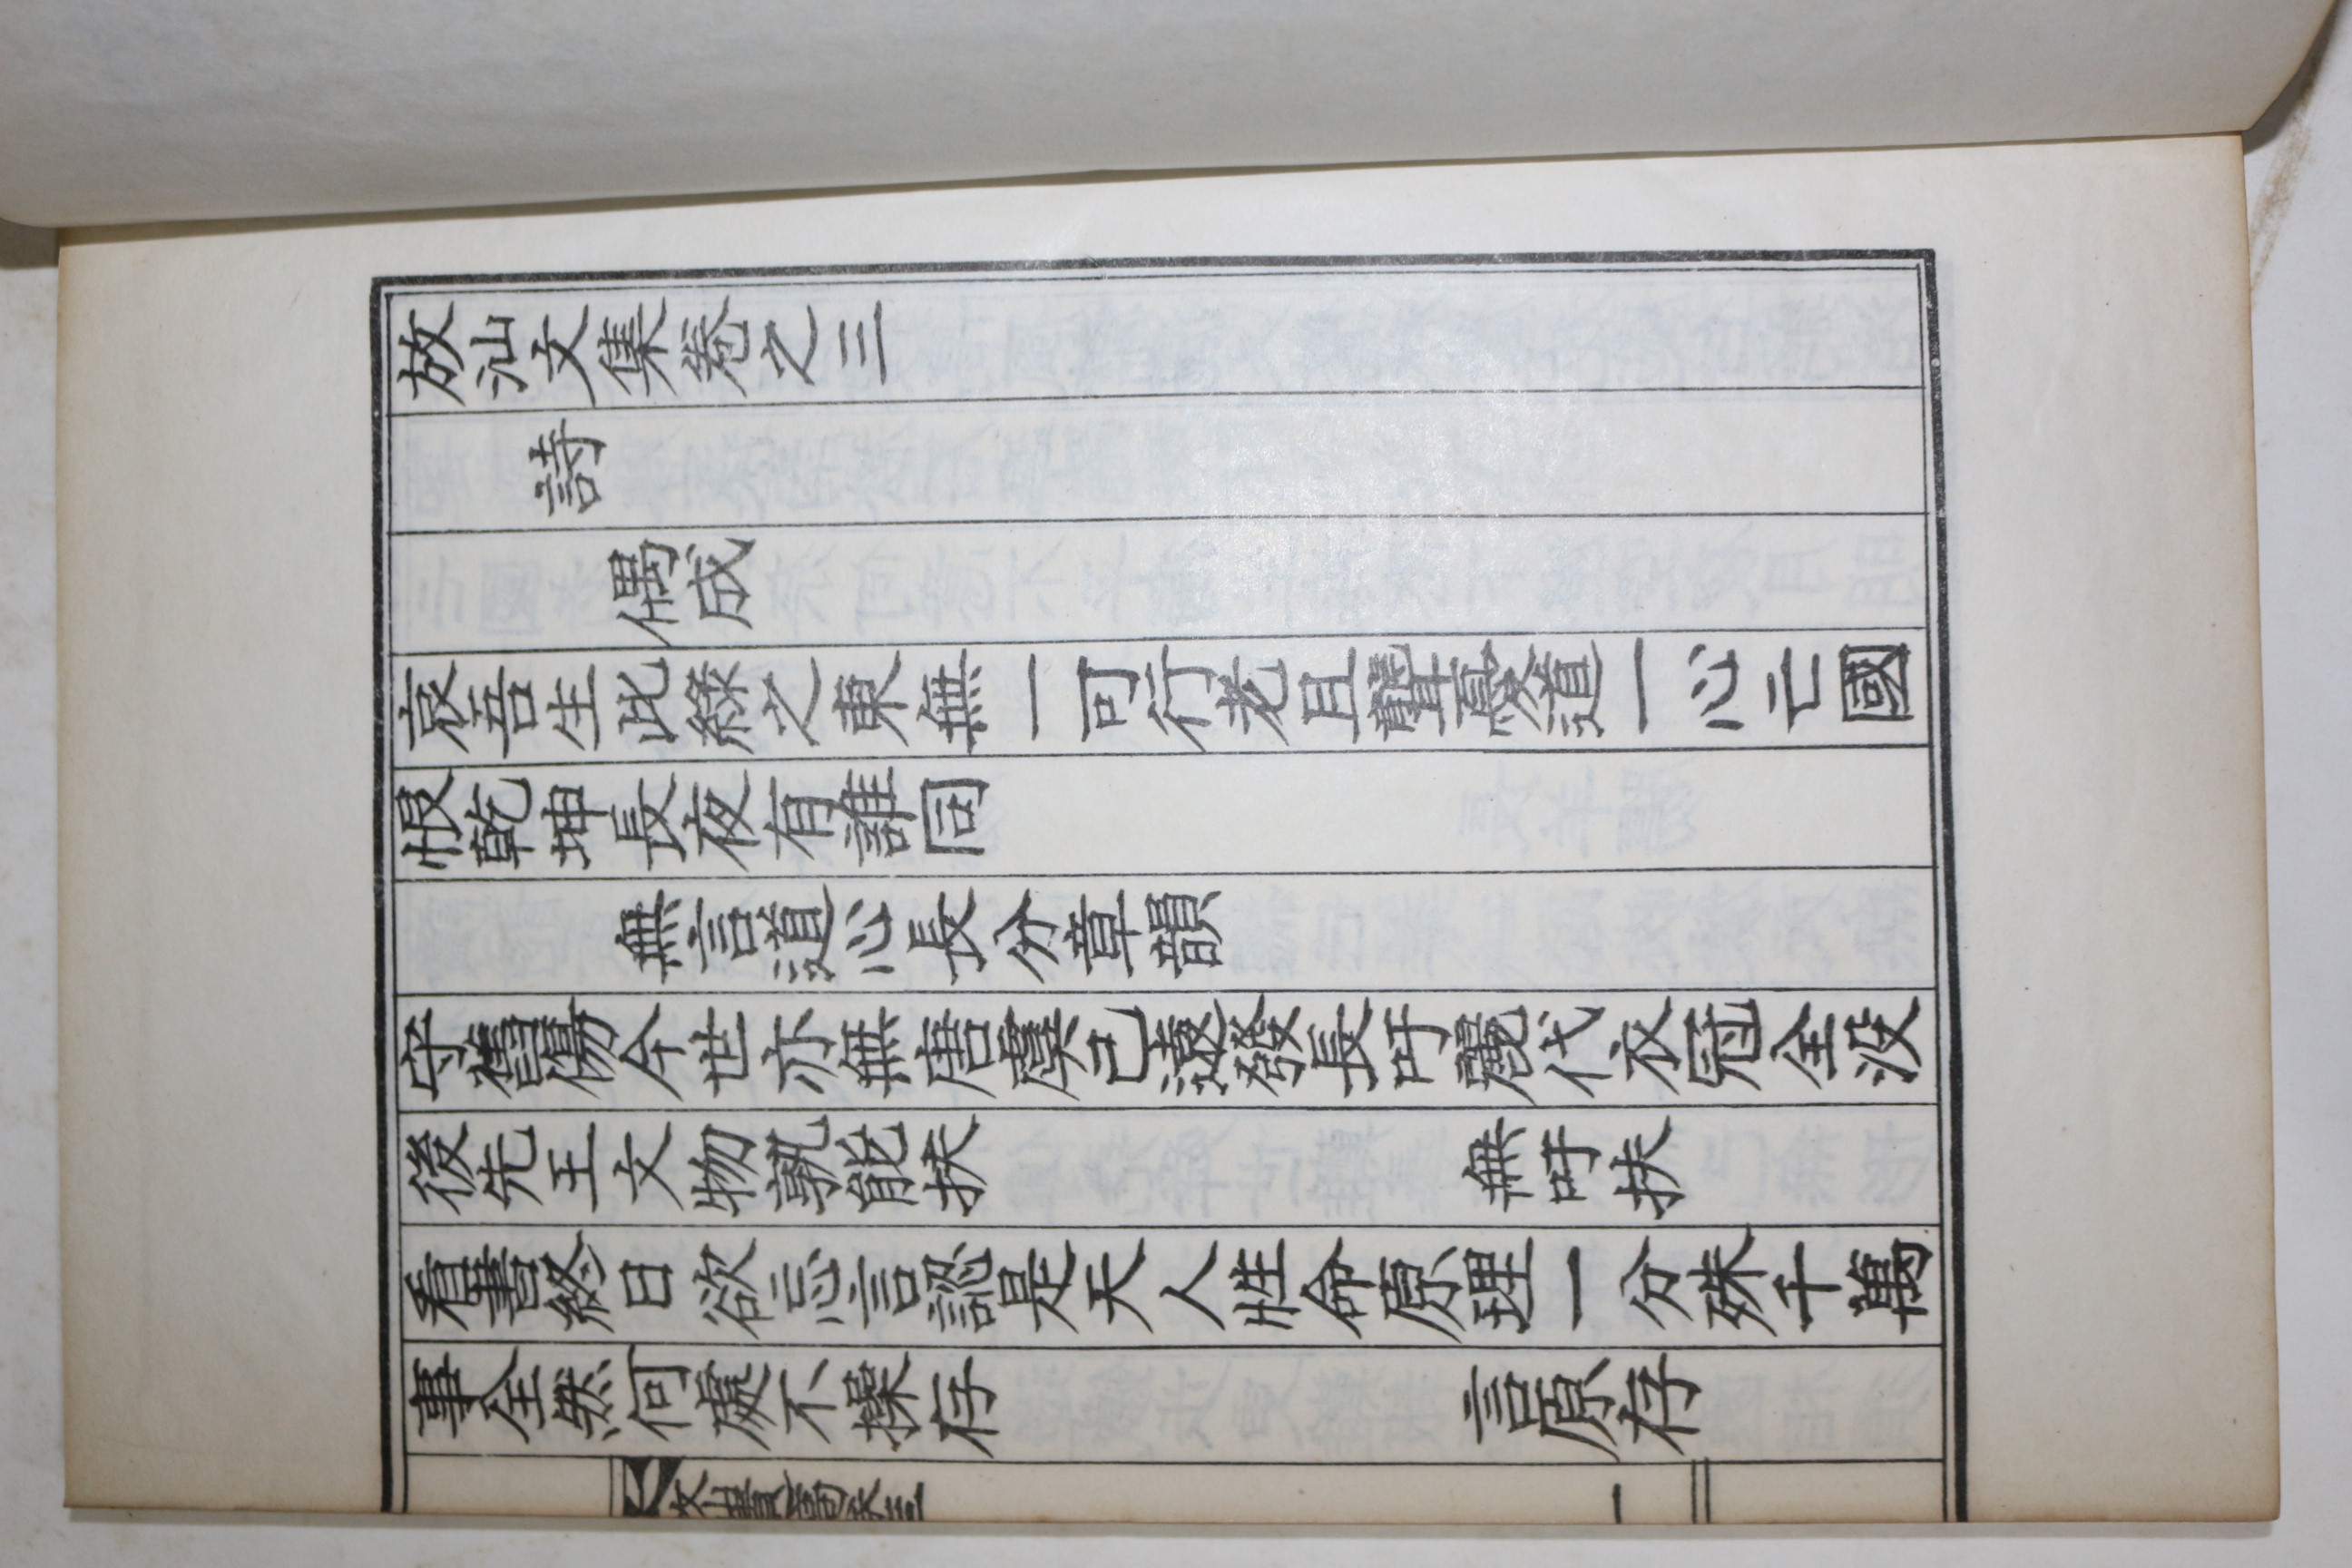 放汕文集卷之三
詩
偶成
哀吾生此綠之東無一可行老且聾憂道一心亡國
恨乾坤長夜有誰同
無言道心長分章韻
守舊傷今世亦無唐虞已邈發長吁麗代衣冠全沒
後先王文物孰能扶 無吁扶
看書終日欲忘言認是天人性命原理一分殊千萬
事全然何處不操存 言原存
一